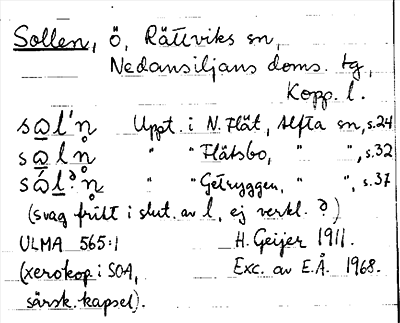 Sollen, ö, Rättviks sn,
Nedansiljans doms. tg,
Kopp. l.
sω̲l'n̥ Uppt. i N. Flät, Alfta sn, s.24
sω̲ln̥ " " Flätsbo, " ", s.32
sώ̲l̲ˀn̥ " " Getryggen, " ", s.37
(svag frikt i slut. av l, ej verkl. ə?)
ULMA 565:1 H. Geijer 1911.
(xerokop. i SOA, Exc. av E.Å. 1968.
särsk. kapsel).